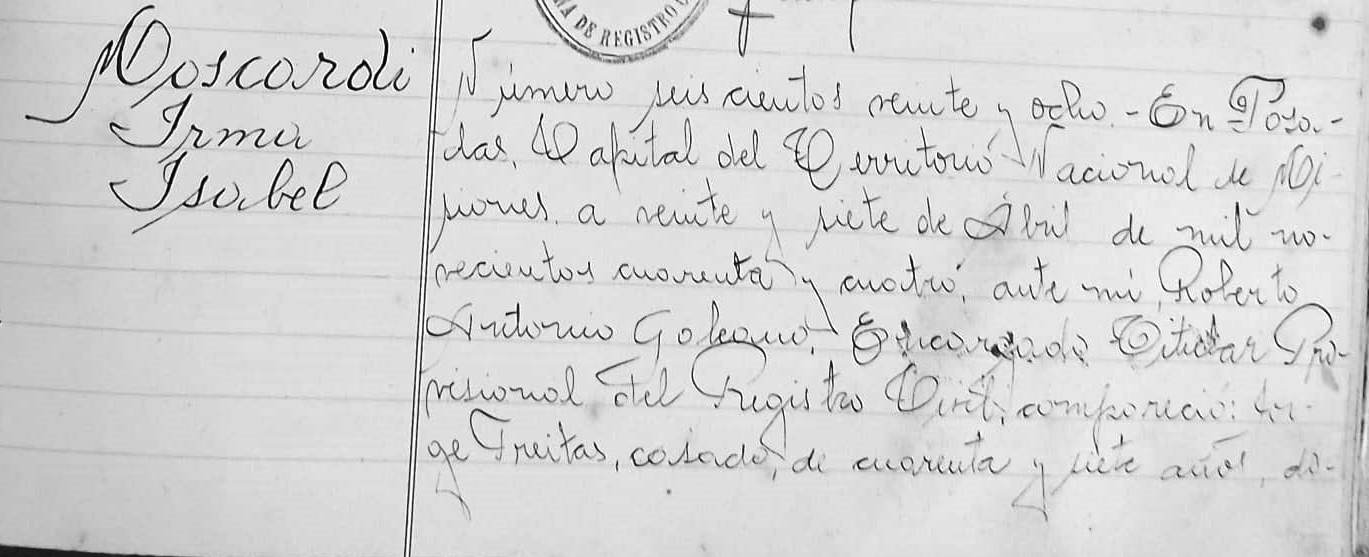 A DE REGISTRO
Moscardi
Irma
Isabel
Número seiscientos veinte y ocho.- En Posa-
das, Capital del Territorio Nacional de Mi-
siones, a veinte y siete de Abril de mil no-
vecientos cuarenta y cuatro, ante mi, Roberto
Antonio Galeano, Encargado Titular Pro-
visional del Registro Civil, compareció: Jor-
ge Freitas, casado, de cuarenta y siete años, di-